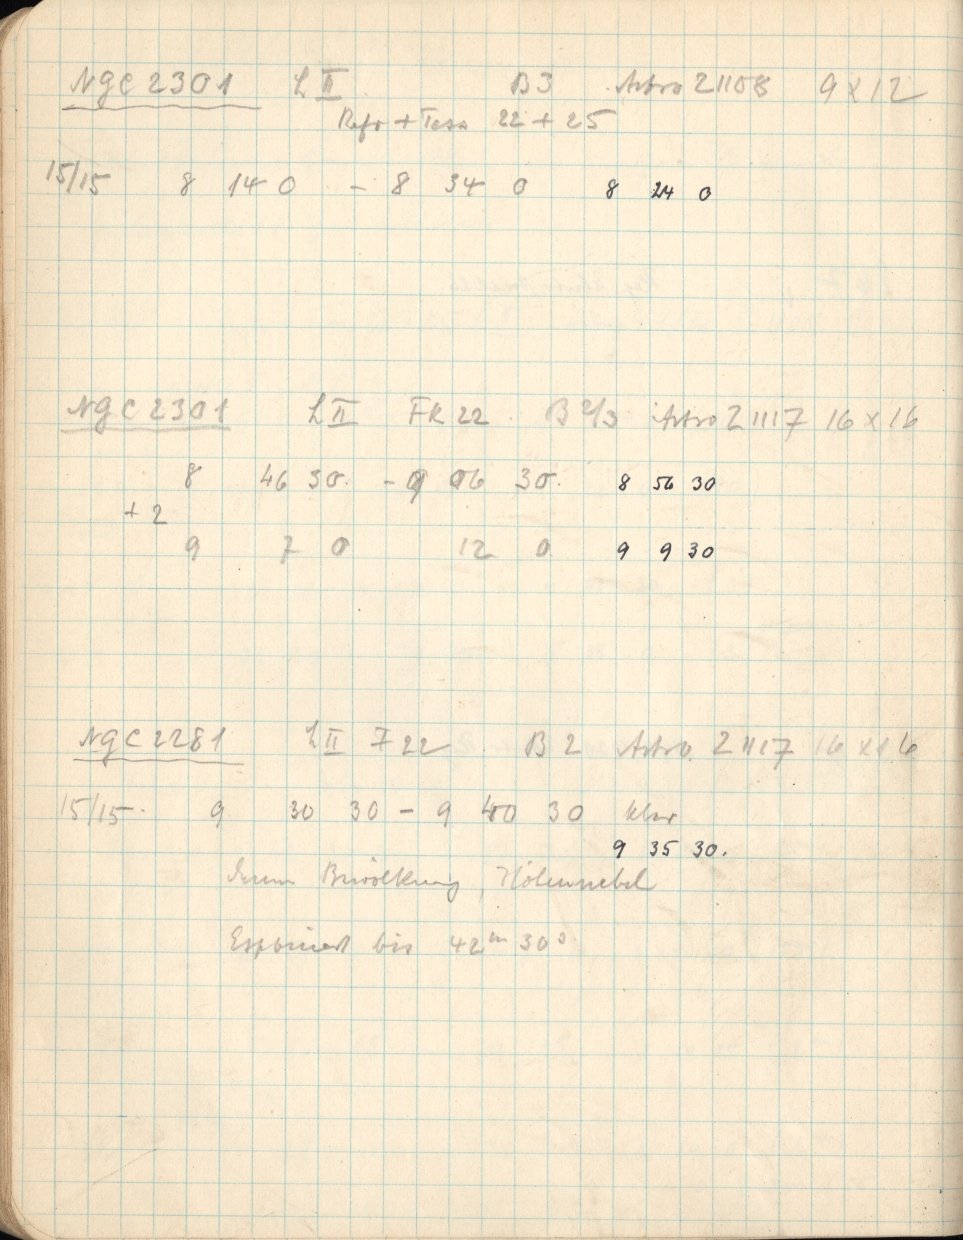 NGC 2301 L II B3 Astro Z 1108 9 x 12
Refr + Tess 22 + 25
15/15 8 14 0 – 8 34 0 8 24 0
NGC 2301 L II FK 22 B 2/3 Astro Z 1117 16 x 16
8 46 30. – 9 06 30. 8 56 30
+ 2
9 7 0 12 0 9 9 30
NGC 2281 L II F 22 B 2 Astro Z 1117 16 x 16
15/15. 9 30 30 – 9 40 30 klar
9 35 30.
Bewölkung, Höhennebel
Exponiert bis 42ᵐ 30ˢ